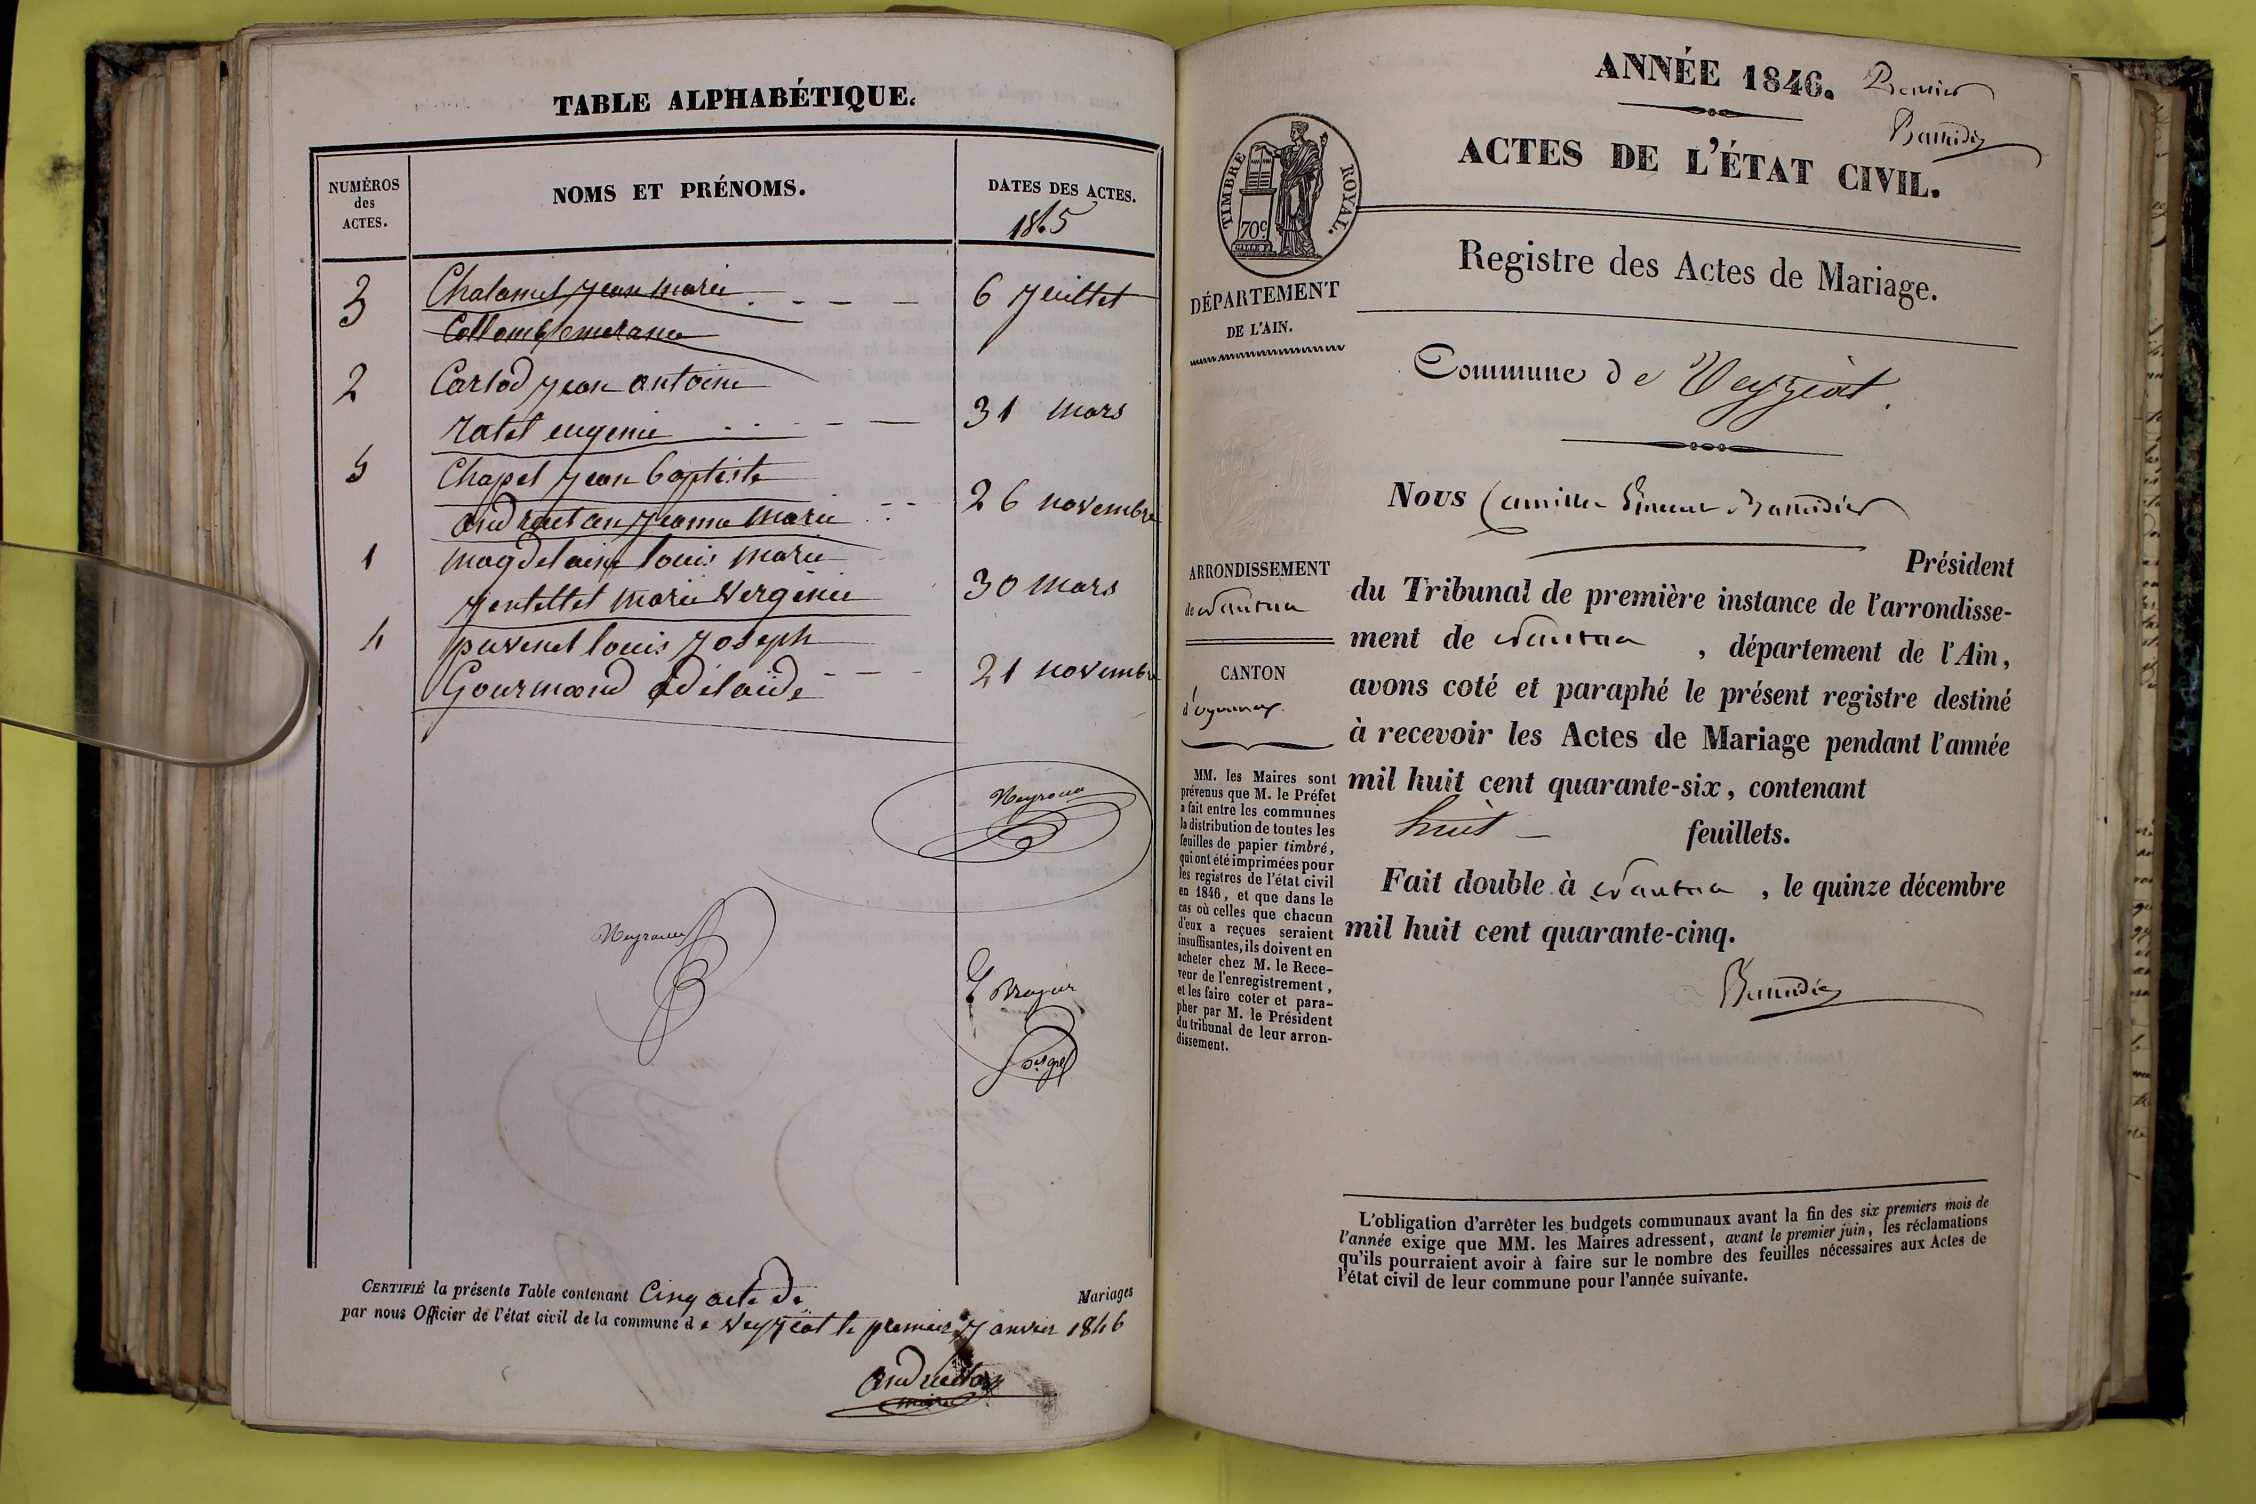 TABLE ALPHABÉTIQUE.
NUMÉROS
des
ACTES.
NOMS ET PRÉNOMS.
DATES DES ACTES.
1845
3 Chalamel jean marie 6 juillet
Collomb emerance
2 Carlod jean antoine
ratet eugenie 31 mars
5 Chapel jean baptiste
andruetan jeanne marie 26 novembre
1 magdelaine louis marie
jentellet marie vergenie 30 mars
4 puvenel louis joseph
Gourmand adélaïde 21 novembre
CERTIFIÉ la présente Table contenant Cinq acte de Mariages
par nous Officier de l'état civil de la commune de veyziat le premier janvier 1846
maire
ANNÉE 1846. Premier
ACTES DE L'ÉTAT CIVIL.
TIMBRE ROYAL.
70c
Registre des Actes de Mariage.
DÉPARTEMENT
DE L'AIN.
Commune de Veyziat.
Nous Camille
Président
ARRONDISSEMENT
de Nantua
du Tribunal de première instance de l'arrondisse-
ment de Nantua, département de l'Ain,
CANTON
d'oyonnax.
avons coté et paraphé le présent registre destiné
à recevoir les Actes de Mariage pendant l'année
mil huit cent quarante-six, contenant
huit feuillets.
Fait double à Nantua, le quinze décembre
mil huit cent quarante-cinq.
MM. les Maires sont
prévenus que M. le Préfet
a fait entre les communes
la distribution de toutes les
feuilles de papier timbré,
qui ont été imprimées pour
les registres de l'état civil
en 1846, et que dans le
cas où celles que chacun
d'eux a reçues seraient
insuffisantes, ils doivent en
acheter chez M. le Rece-
veur de l'enregistrement,
et les faire coter et para-
pher par M. le Président
du tribunal de leur arron-
dissement.
L'obligation d'arrêter les budgets communaux avant la fin des six premiers mois de
l'année exige que MM. les Maires adressent, avant le premier juin, les réclamations
qu'ils pourraient avoir à faire sur le nombre des feuilles nécessaires aux Actes de
l'état civil de leur commune pour l'année suivante.